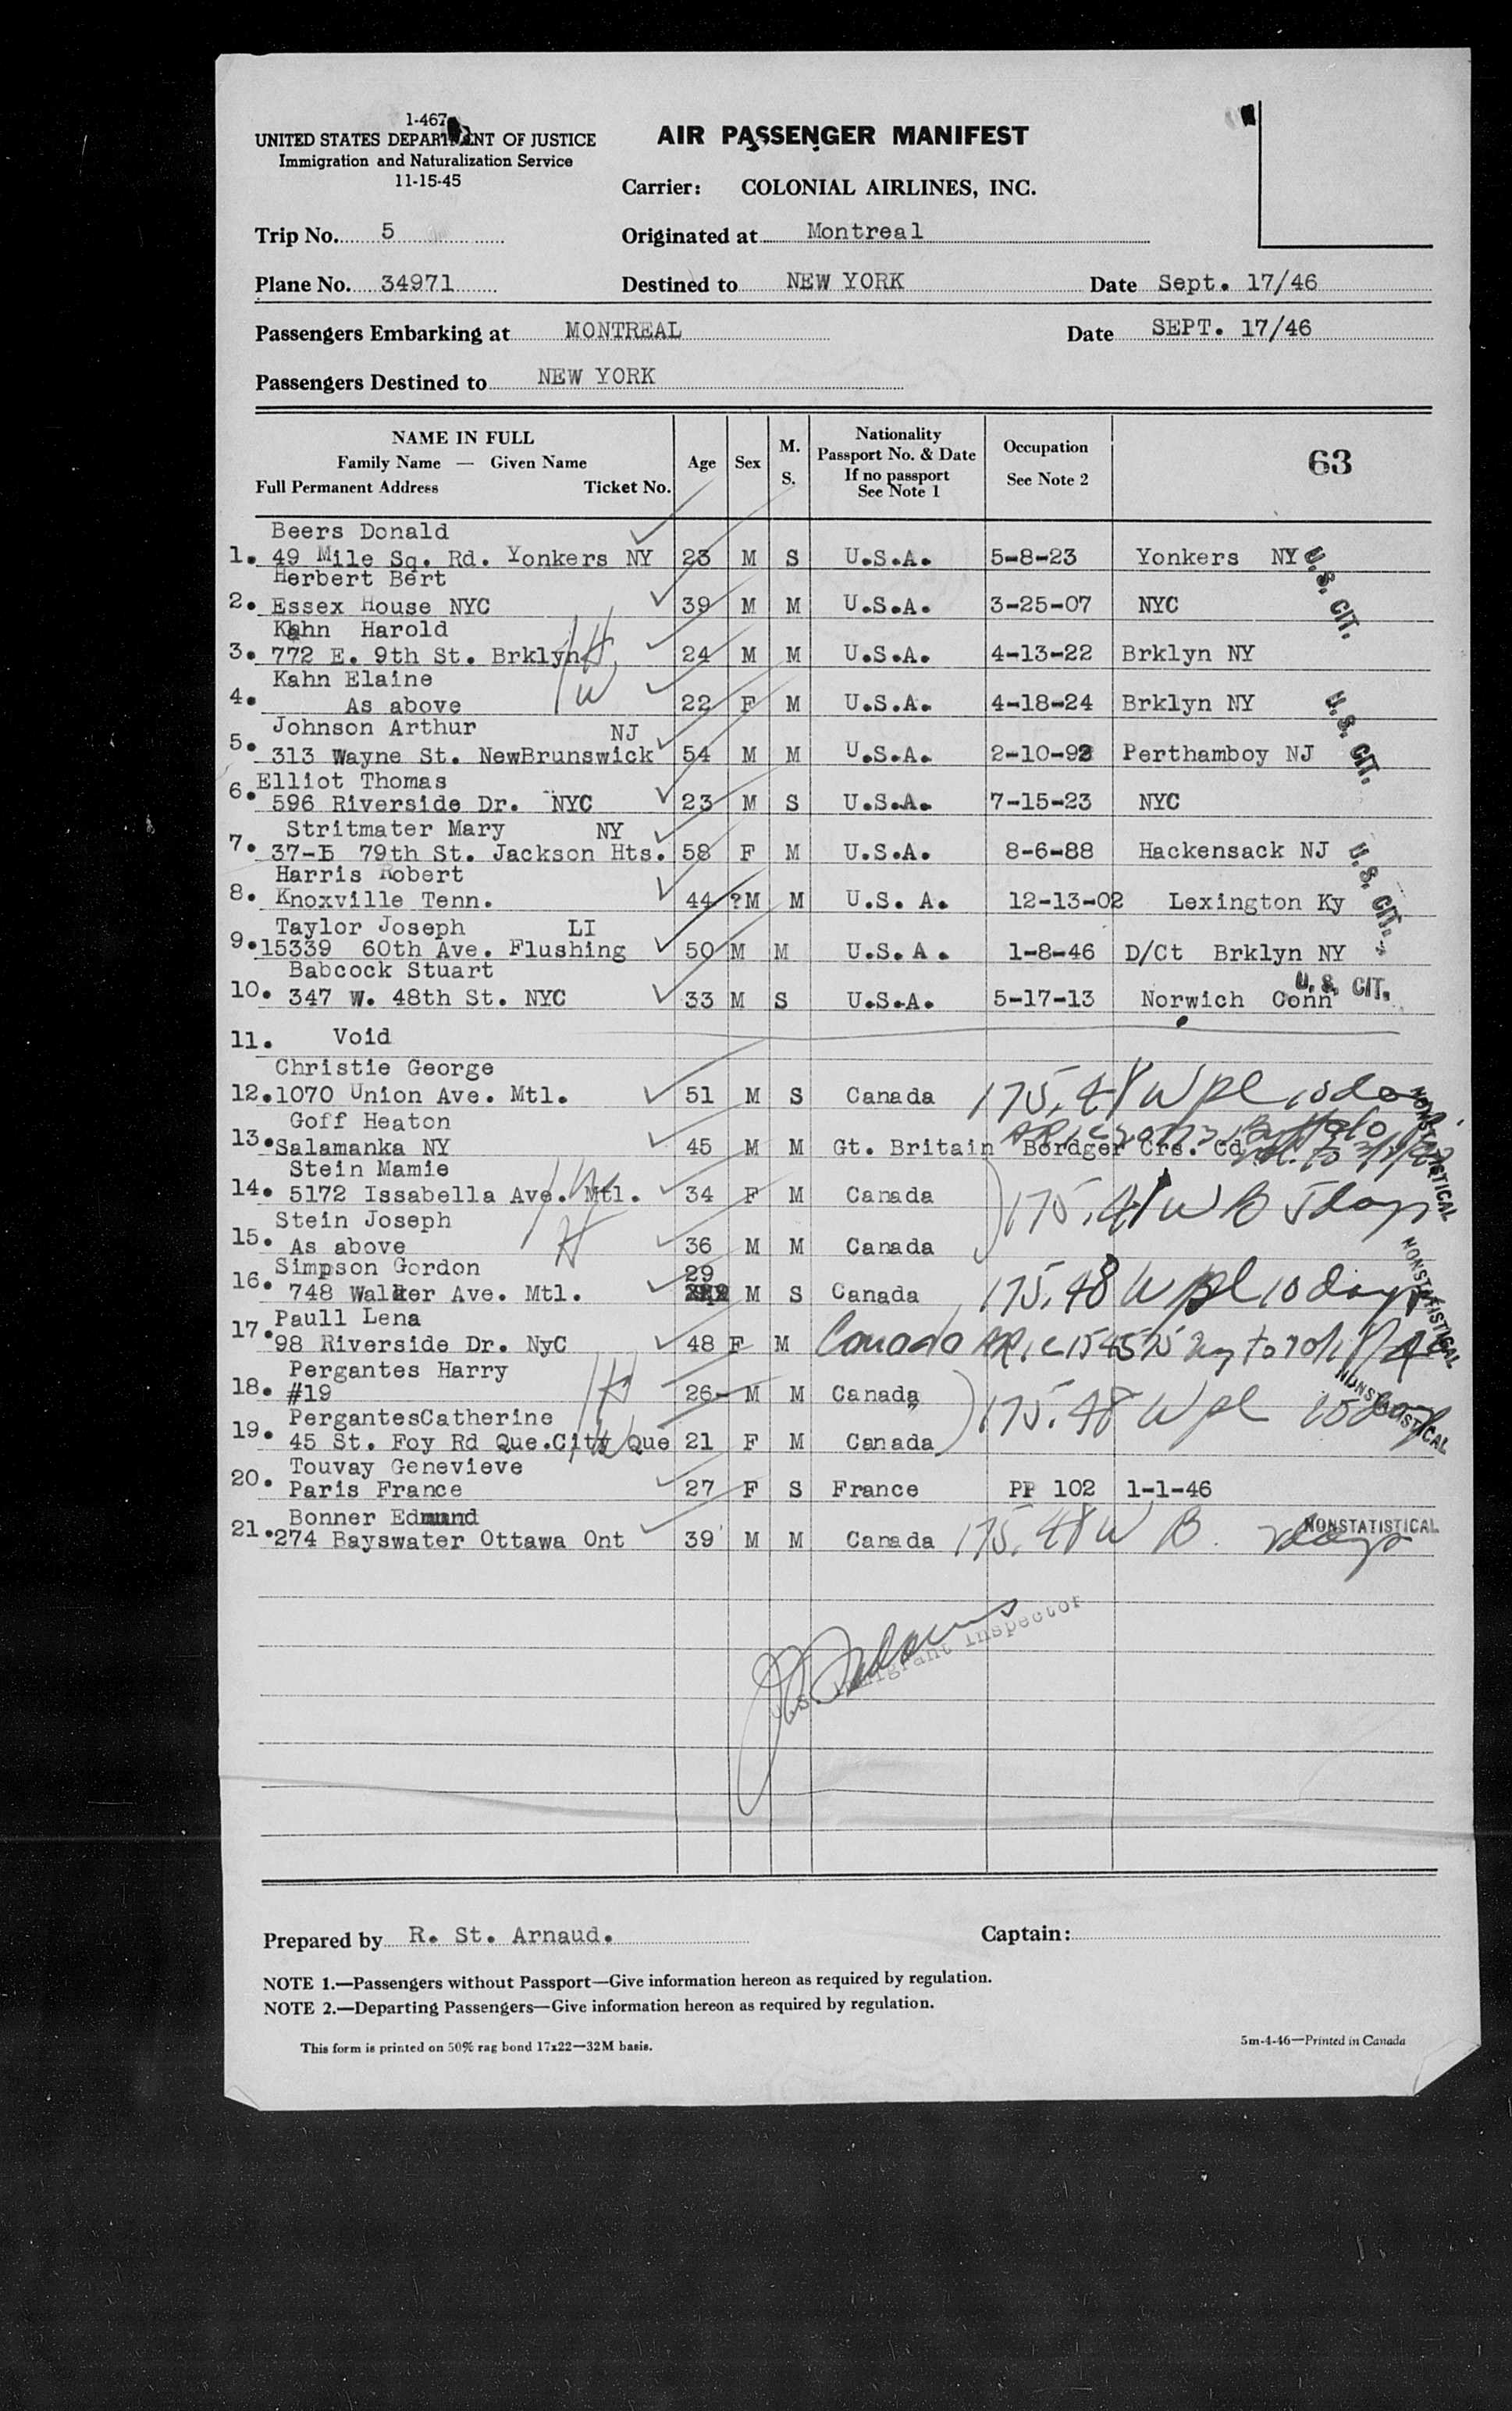 1-467
UNITED STATES DEPARTMENT OF JUSTICE
Immigration and Naturalization Service
11-15-45
AIR PASSENGER MANIFEST
Carrier: COLONIAL AIRLINES, INC.
Trip No. 5 Originated at Montreal
Plane No. 34971 Destined to NEW YORK Date Sept. 17/46
Passengers Embarking at MONTREAL Date SEPT. 17/46
Passengers Destined to NEW YORK
NAME IN FULL
Family Name — Given Name
Full Permanent Address Ticket No.
Age Sex M. S.
Nationality
Passport No. & Date
If no passport
See Note 1
Occupation
See Note 2
63
Beers Donald
1. 49 Mile Sq. Rd. Yonkers NY 23 M S U.S.A. 5-8-23 Yonkers NY
U.S. CIT.
Herbert Bert
2. Essex House NYC 39 M M U.S.A. 3-25-07 NYC
Kahn Harold
3. 772 E. 9th St. Brklyn H 24 M M U.S.A. 4-13-22 Brklyn NY
Kahn Elaine
4. As above W 22 F M U.S.A. 4-18-24 Brklyn NY
U.S. CIT.
Johnson Arthur NJ
5. 313 Wayne St. NewBrunswick 54 M M U.S.A. 2-10-92 Perthamboy NJ
Elliot Thomas
6. 596 Riverside Dr. NYC 23 M S U.S.A. 7-15-23 NYC
Stritmater Mary NY
7. 37-15 79th St. Jackson Hts. 58 F M U.S.A. 8-6-88 Hackensack NJ
U.S. CIT.
Harris Robert
8. Knoxville Tenn. 44 ?M M U.S. A. 12-13-02 Lexington Ky
Taylor Joseph LI
9. 15339 60th Ave. Flushing 50 M M U.S.A. 1-8-46 D/Ct Brklyn NY
Babcock Stuart
10. 347 W. 48th St. NYC 33 M S U.S.A. 5-17-13 Norwich Conn
U.S. CIT.
11. Void
Christie George
12. 1070 Union Ave. Mtl. 51 M S Canada 175.48 W pl 10 days
NONSTATISTICAL
Goff Heaton
13. Salamanka NY 45 M M Gt. Britain Bordger Crs. Cd
Buffalo
Stein Mamie
14. 5172 Issabella Ave. Mtl. W 34 F M Canada
175.41 W B 5 days
Stein Joseph
15. As above H 36 M M Canada
Simpson Gordon
29
16. 748 Walker Ave. Mtl. M S Canada 175.48 W pl 10 days
NONSTATISTICAL
Paull Lena
17. 98 Riverside Dr. NyC 48 F M Canada
Pergantes Harry
18. #19 H 26 M M Canada
175.48 W pl 10 days
NONSTATISTICAL
PergantesCatherine
19. 45 St. Foy Rd Que.City Que W 21 F M Canada
Touvay Genevieve
20. Paris France 27 F S France PP 102 1-1-46
Bonner Edmund
21. 274 Bayswater Ottawa Ont 39 M M Canada 175.48 W B days
NONSTATISTICAL
U.S. Immigrant Inspector
Prepared by R. St. Arnaud. Captain:
NOTE 1.—Passengers without Passport—Give information hereon as required by regulation.
NOTE 2.—Departing Passengers—Give information hereon as required by regulation.
This form is printed on 50% rag bond 17x22—32M basis. 5m-4-46—Printed in Canada